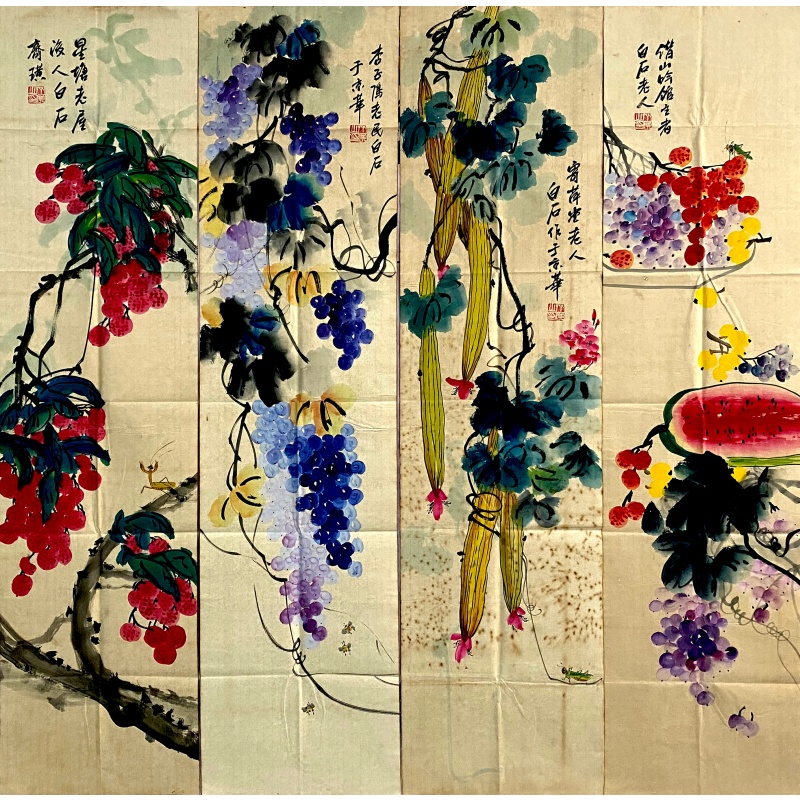 借山吟館主者
白石老人
寄萍堂老人
白石作于京華
杏子隖老民白石
于京華
星塘老屋
後人白石
齊璜